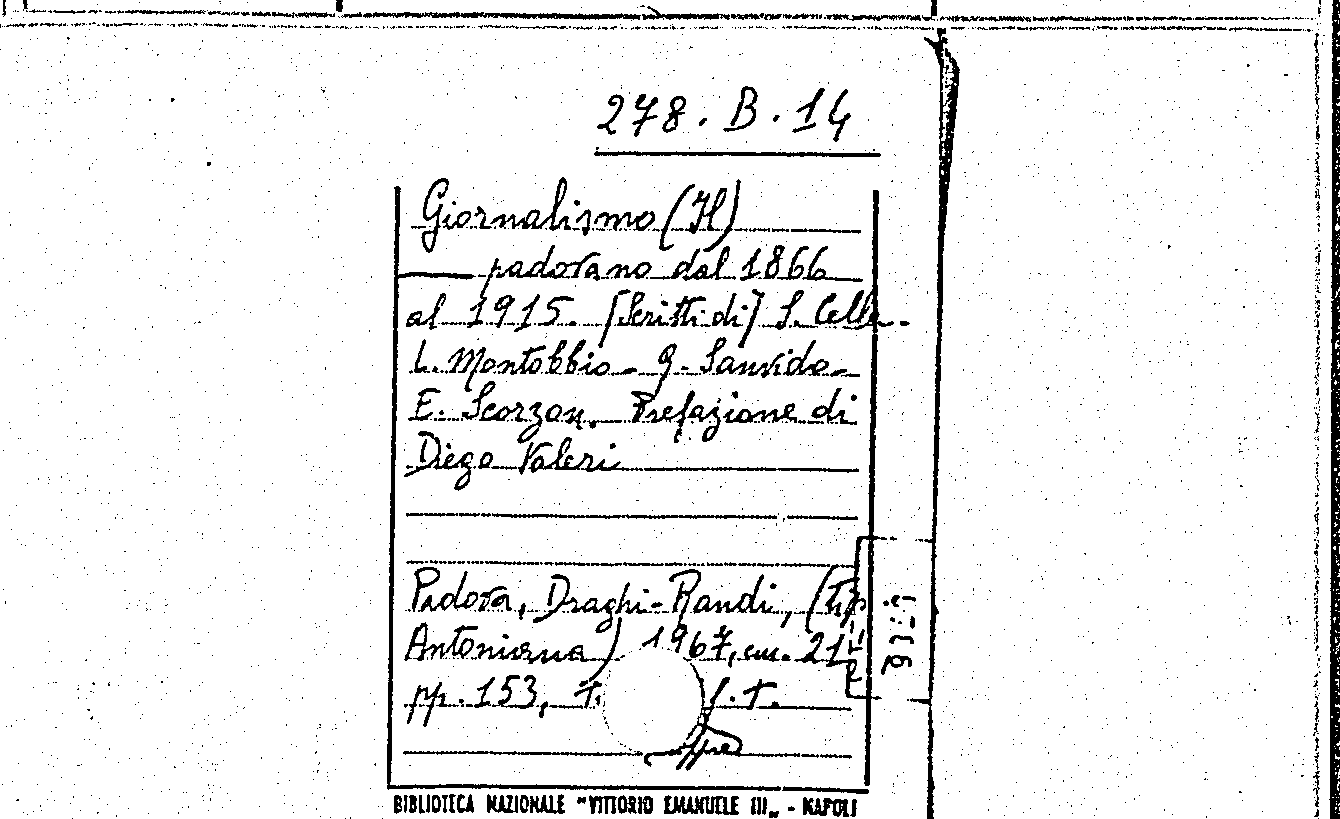 278. B. 14
Giornalismo (Il)
— padovano dal 1866
al 1915. [Scritti di] S. Cella.
L. Montobbio - G. Sanvido -
E. Scorzon. Prefazione di
Diego Valeri
Padova, Draghi-Randi, (tip
Antoniana) 1967, cm. 21
pp. 153, t. f. t.
BIBLIOTECA NAZIONALE "VITTORIO EMANUELE III„ - NAPOLI